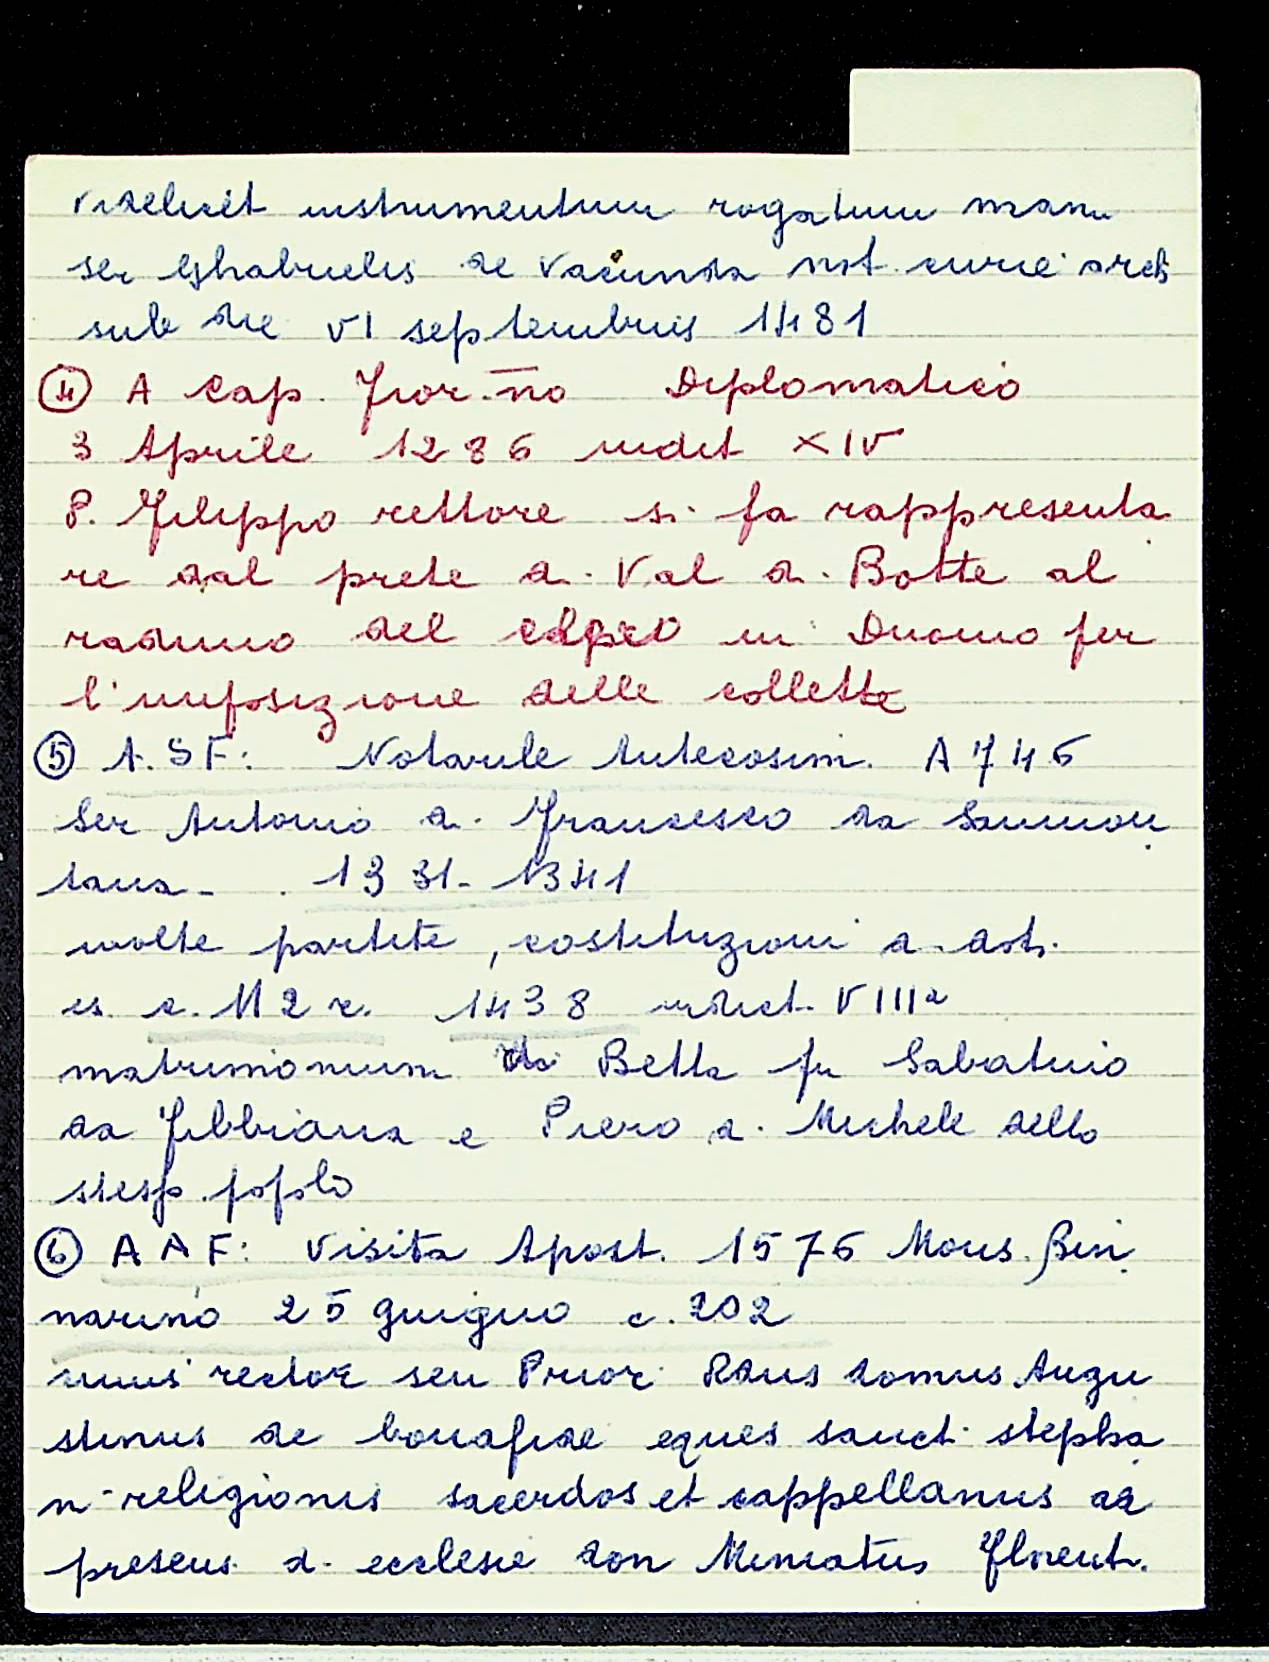 videlicet instrumentum rogatum manu
ser Ghabruelis de Vacunda not. curie arch
sub die VI septembris 1481
④ A Cap. Fior.no Diplomatico
3 Aprile 1286 indict XIV
P. Filippo rettore si fa rappresenta
re dal prete di Val di Botte al
raduno del clero in Duomo per
l'imposizione delle collette
⑤ A.S F: Notarile Antecosim. A 746
Ser Antonio di Francesco da Sammon
tana - 1331-1341
molte partite, costituzioni di doti
es. c. 112 r. 1438 indict. VIIIa
matrimonium di Betta fu Sabatino
da Fibbiana e Piero di Michele dello
stesso popolo
⑥ A A F: Visita Apost. 1576 Mons. Bin
narino 25 giugno c. 202
unus rector seu Prior Rdus domus Augu
stinus de bonafide eques sanct. stepha
ni religionis sacerdos et cappellanus ad
presens d. ecclesie don Miniatus Florent.